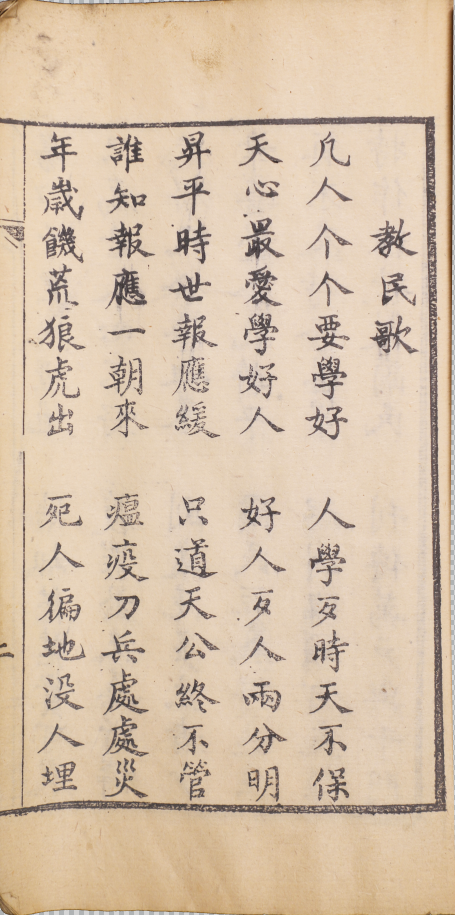 教民歌
凡人个个要學好　人學歹時天不保
天心最愛學好人　好人歹人兩分明
昇平時世報應緩　只道天公終不管
誰知報應一朝來　瘟疫刀兵處處災
年歲饑荒狼虎出　死人徧地没人埋
二